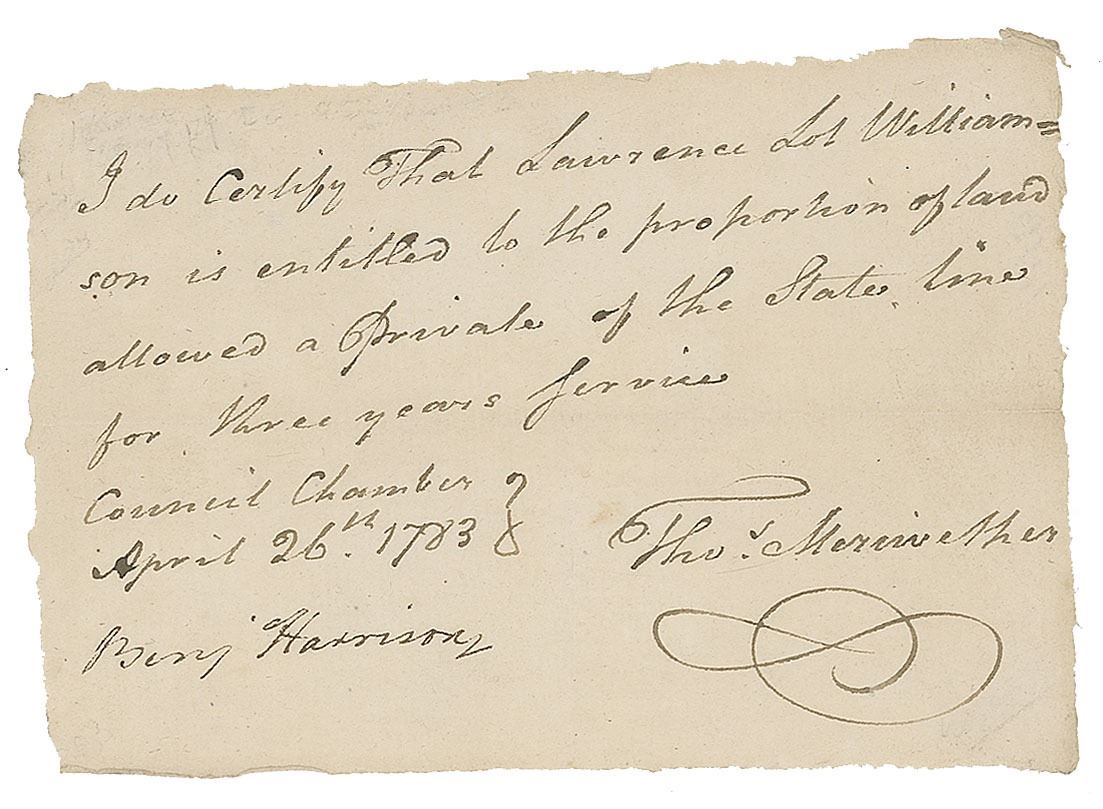 I do Certify That Lawrence Lot William=
son is entitled to the proportion of land
allowed a Private of the State line
for three years Service
Council Chamber }
April 26th. 1783 }
Thos. Meriwether
Benj Harrison